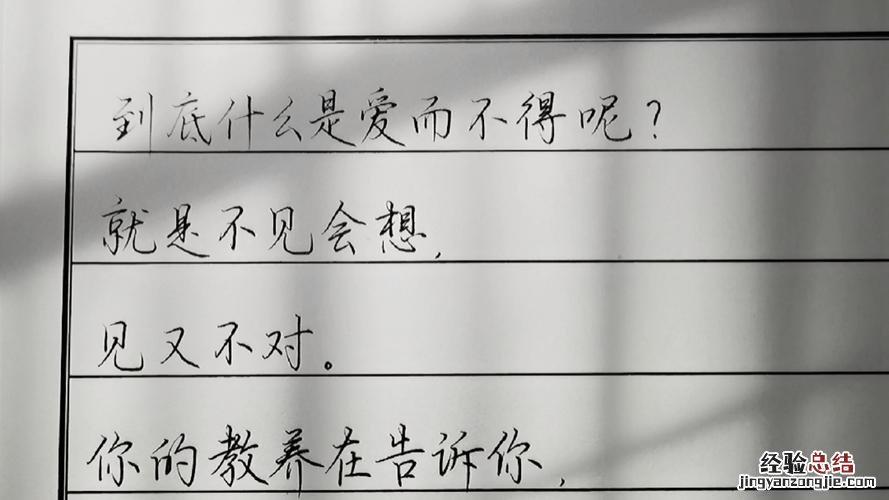 到底什么是爱而不得呢？
就是不见会想，
见又不对。
你的教养在告诉你，
经验总结
jingyanzongjie.com